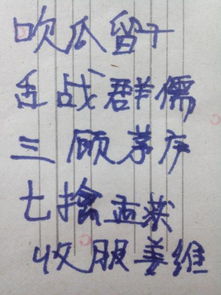 吹瓜留于
舌战群儒
三顾茅庐
七擒孟获
收服姜维